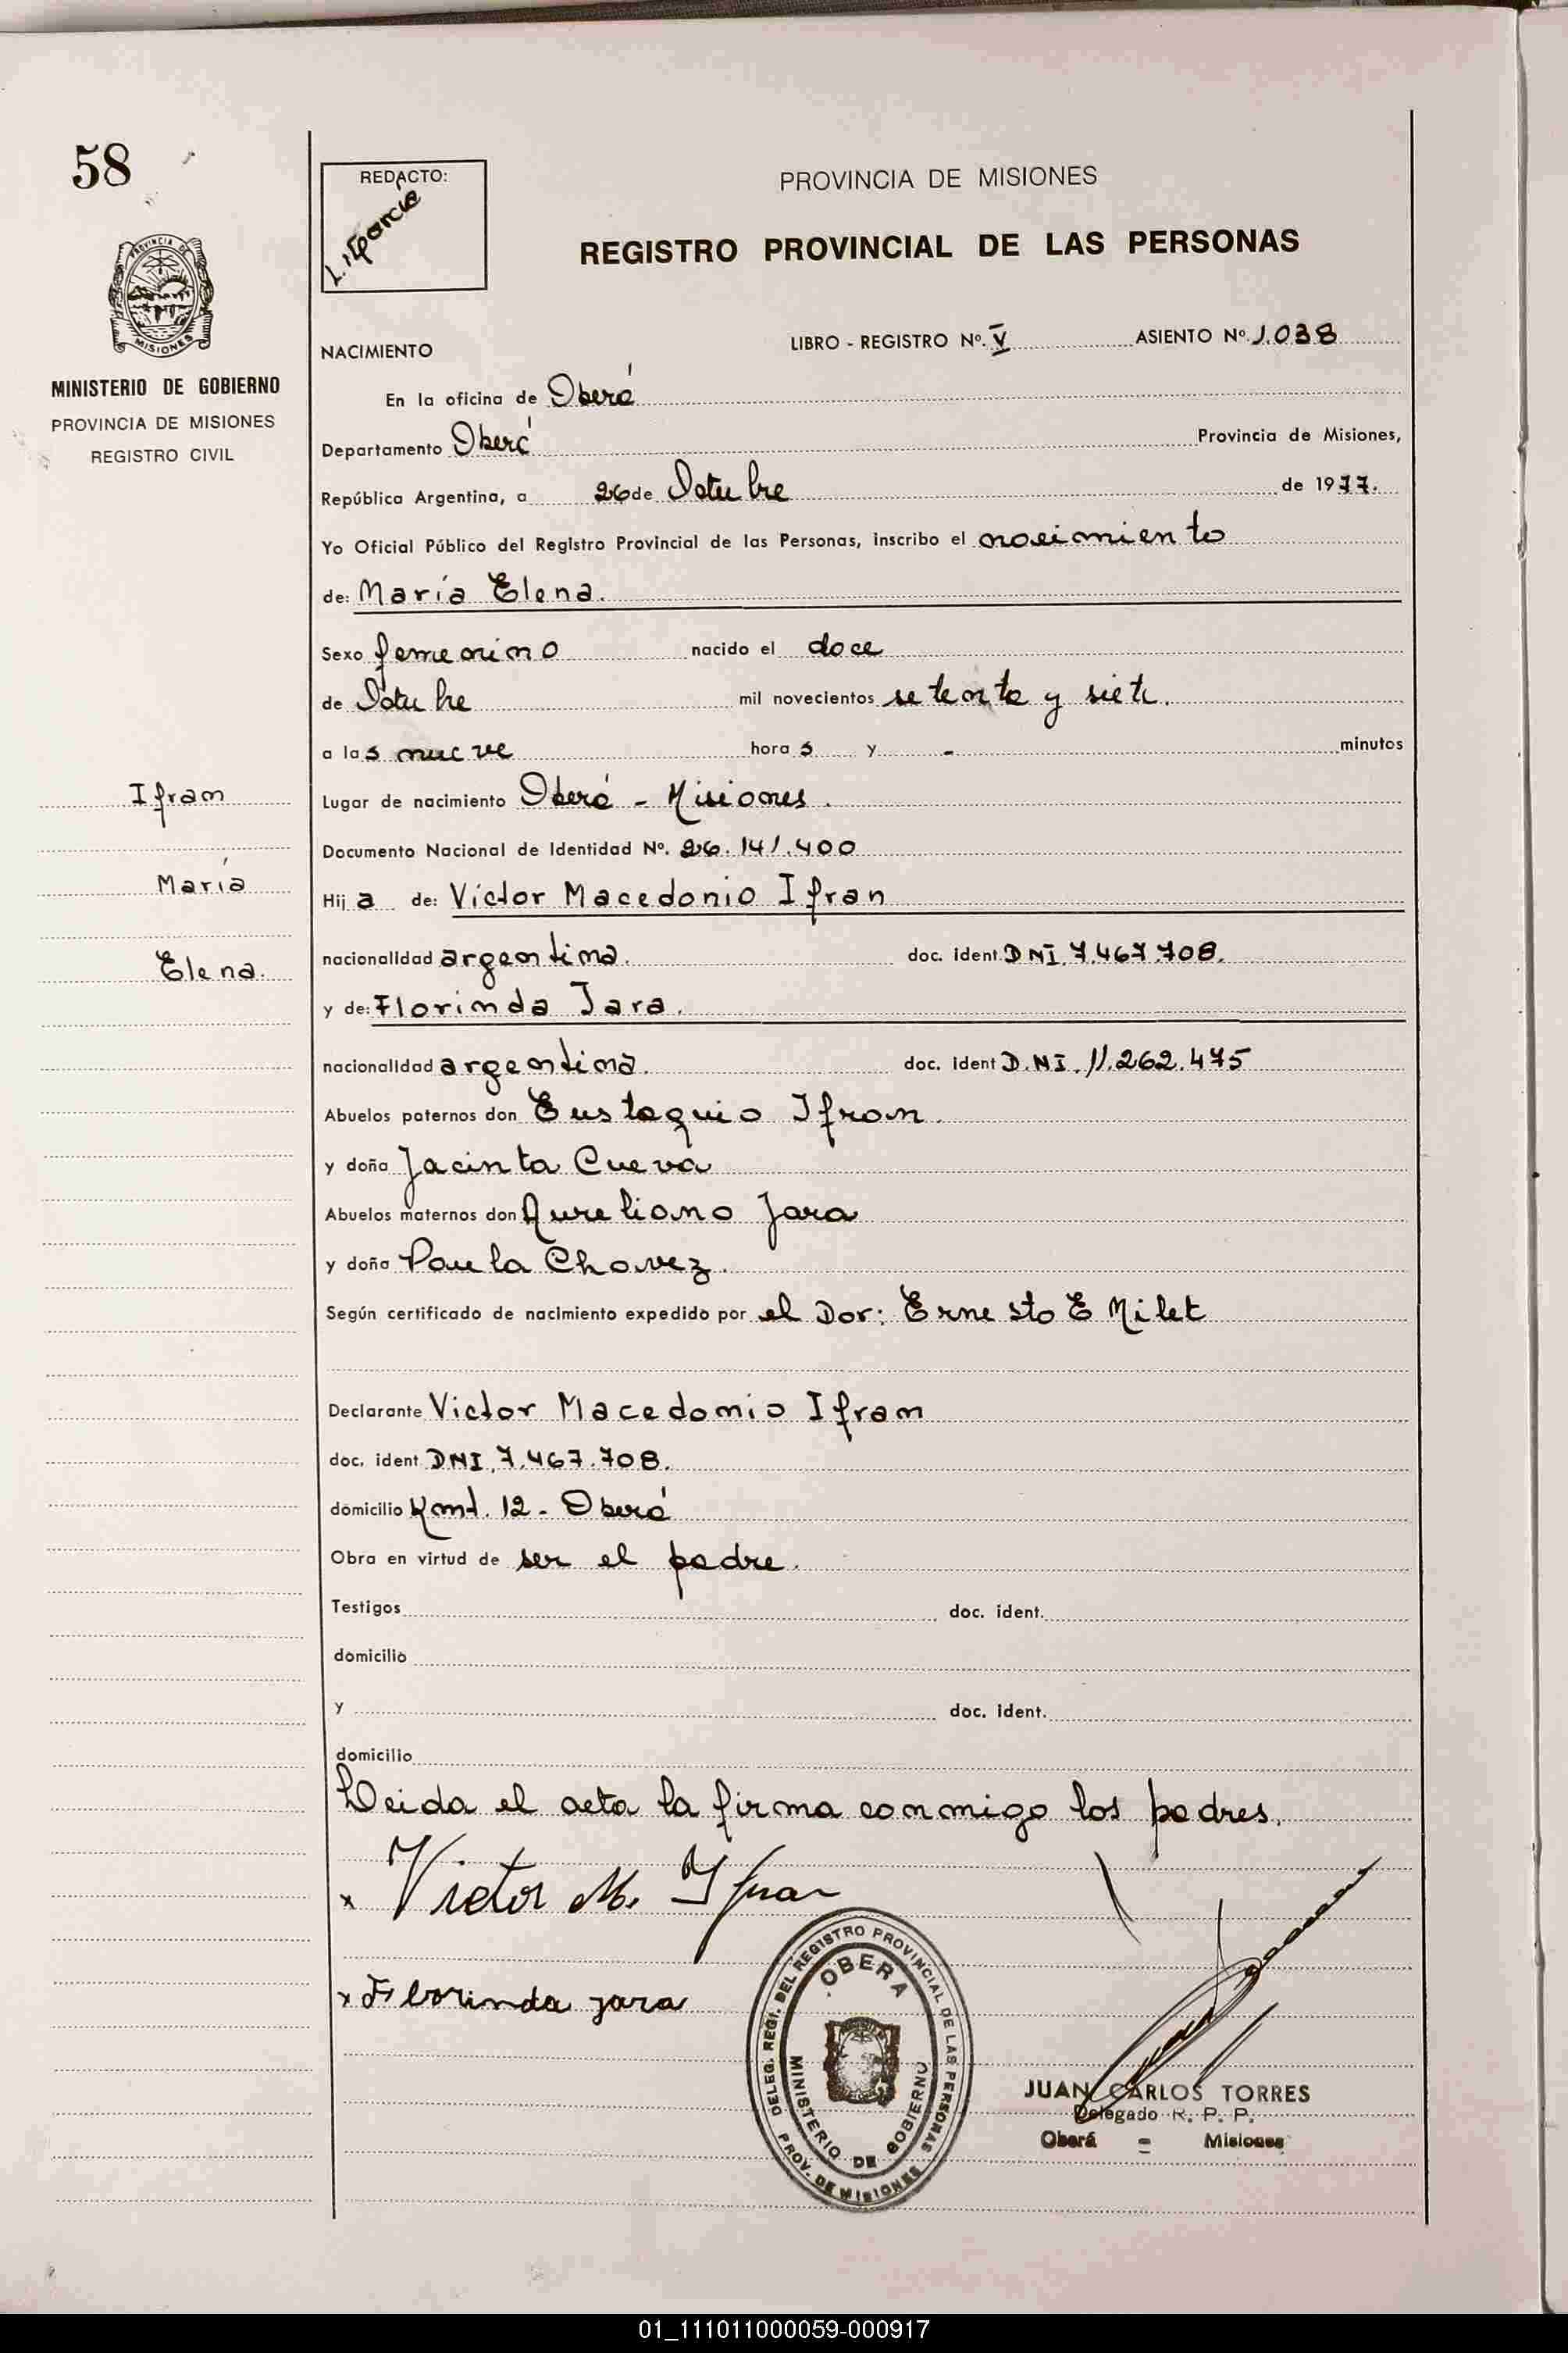 58
REDACTO:
PROVINCIA DE MISIONES
REGISTRO PROVINCIAL DE LAS PERSONAS
PROVINCIA DE
MISIONES
MINISTERIO DE GOBIERNO
PROVINCIA DE MISIONES
REGISTRO CIVIL
NACIMIENTO LIBRO - REGISTRO Nº. V ASIENTO Nº. 1.038
En la oficina de Oberá
Departamento Oberá Provincia de Misiones,
República Argentina, a 26 de Octubre de 1977.
Yo Oficial Público del Registro Provincial de las Personas, inscribo el nacimiento
de: María Elena.
Sexo femenino nacido el doce
de Octubre mil novecientos setenta y siete.
a las nueve horas y - minutos
Ifran
María
Elena.
Lugar de nacimiento Oberá - Misiones.
Documento Nacional de Identidad Nº. 26.141.400
Hija de: Víctor Macedonio Ifran
nacionalidad argentina. doc. ident. DNI. 7.467.708.
y de: Florinda Jara.
nacionalidad argentina. doc. ident D.NI. 11.262.475
Abuelos paternos don Eustaquio Ifran.
y doña Jacinta Cueva
Abuelos maternos don Aureliano Jara
y doña Paula Chavez.
Según certificado de nacimiento expedido por el Dor: Ernesto E Milet
Declarante Victor Macedonio Ifran
doc. ident DNI. 7.467.708.
domicilio Kmt. 12 - Oberá
Obra en virtud de ser el padre.
Testigos doc. ident.
domicilio
y doc. ident.
domicilio
Leida el acta la firma conmigo los padres.
x Victor M. Ifran
x Florinda jara
DELEG. REGI. DEL REGISTRO PROVINCIAL DE LAS PERSONAS
OBERA
MINISTERIO DE GOBIERNO
PROV. DE MISIONES
JUAN CARLOS TORRES
Delegado R. P. P.
Oberá - Misiones
01_111011000059-000917